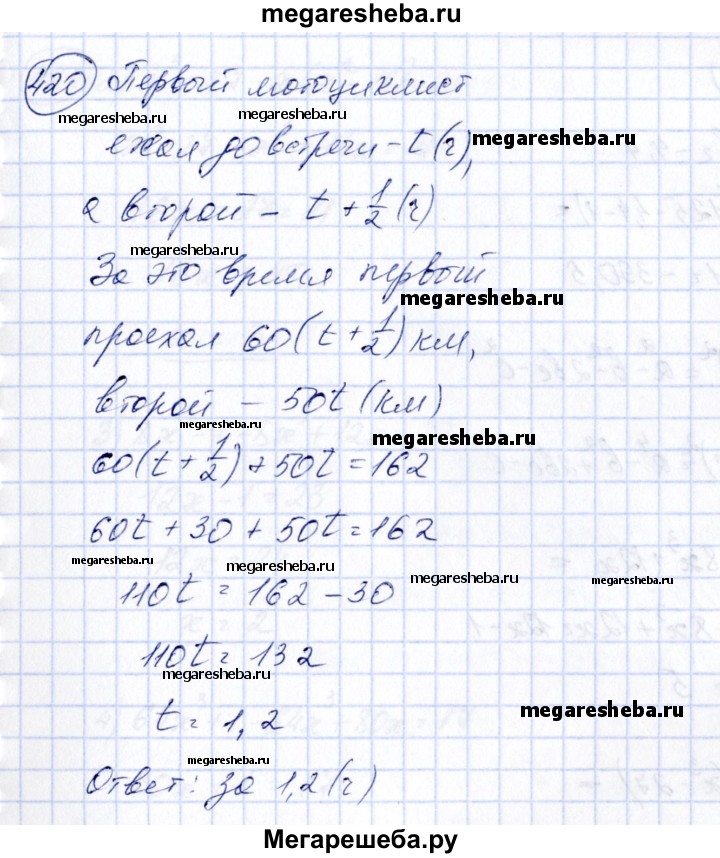 megaresheba.ru
420 Первый мотоциклист
megaresheba.ru megaresheba.ru
ехал до встречи - t (ч), megaresheba.ru
а второй - t + 1/2 (ч)
megaresheba.ru
За это время первый
megaresheba.ru
проехал 60(t + 1/2) км,
второй - 50t (км)
megaresheba.ru megaresheba.ru
60(t + 1/2) + 50t = 162
60t + 30 + 50t = 162
megaresheba.ru megaresheba.ru megaresheba.ru megaresheba.ru
110t = 162 - 30
110t = 132
megaresheba.ru
t = 1,2
megaresheba.ru
megaresheba.ru
Ответ: за 1,2 (ч)
Мегарешеба.ру